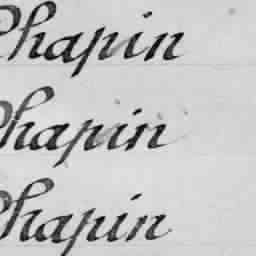 Chapin
Chapin
Chapin